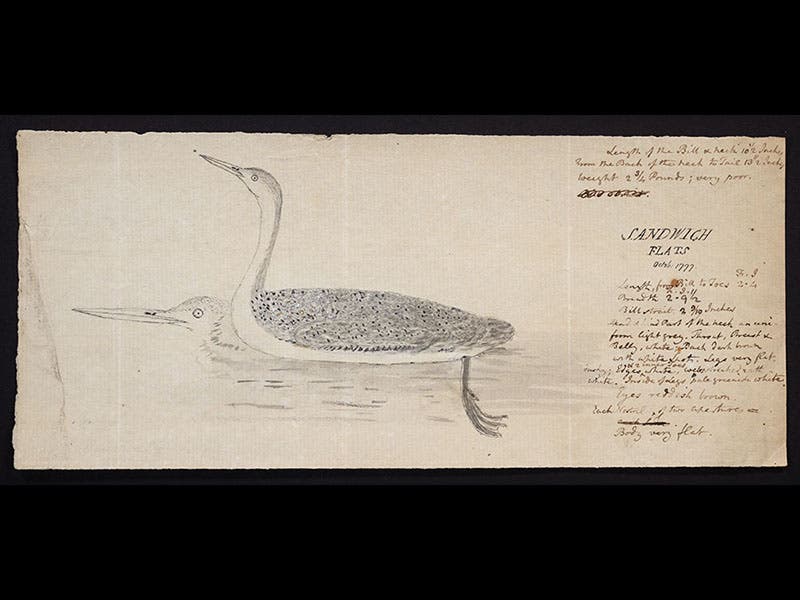 Length of the Bill & neck 10 1/2 Inches
from the Back of the neck to Tail 13 1/2 Inches
weight 2 3/4 Pounds; very poor.
SANDWICH
FLATS
Octbr. 1777.
Ft. I
Length, from Bill to Toes 2·4
Breadth 2·9 1/2
Bill strait 2 9/10 Inches
Head & hind Part of the neck an uni-
form light grey. Throat, Breast &
Belly, white; Back Dark brown
with white spots. Legs very flat.
Edges white, webs
white. Inside of Legs pale greenish white
Eyes reddish brown.
Each Nostril, of two apertures
Body very flat.